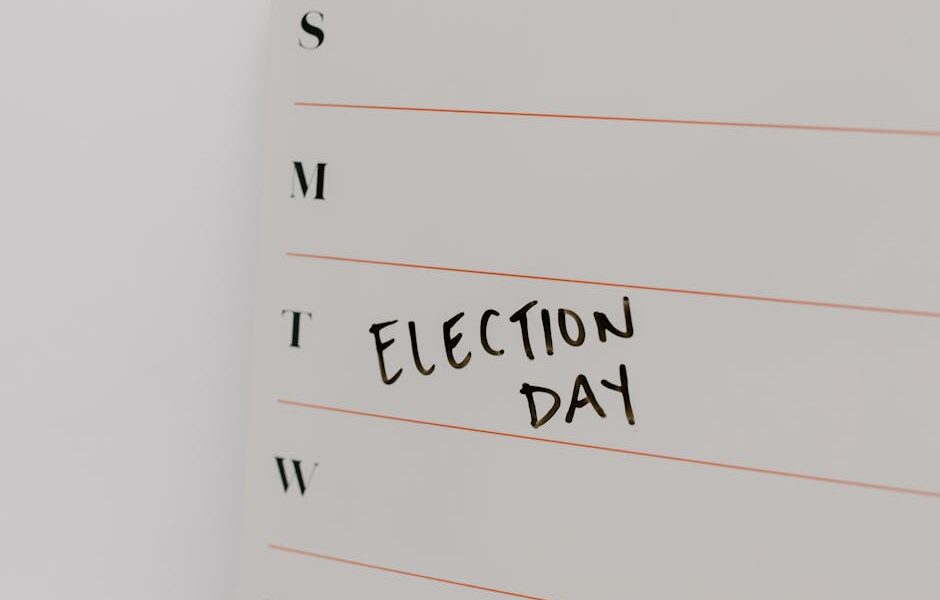 S
M
T ELECTION
DAY
W